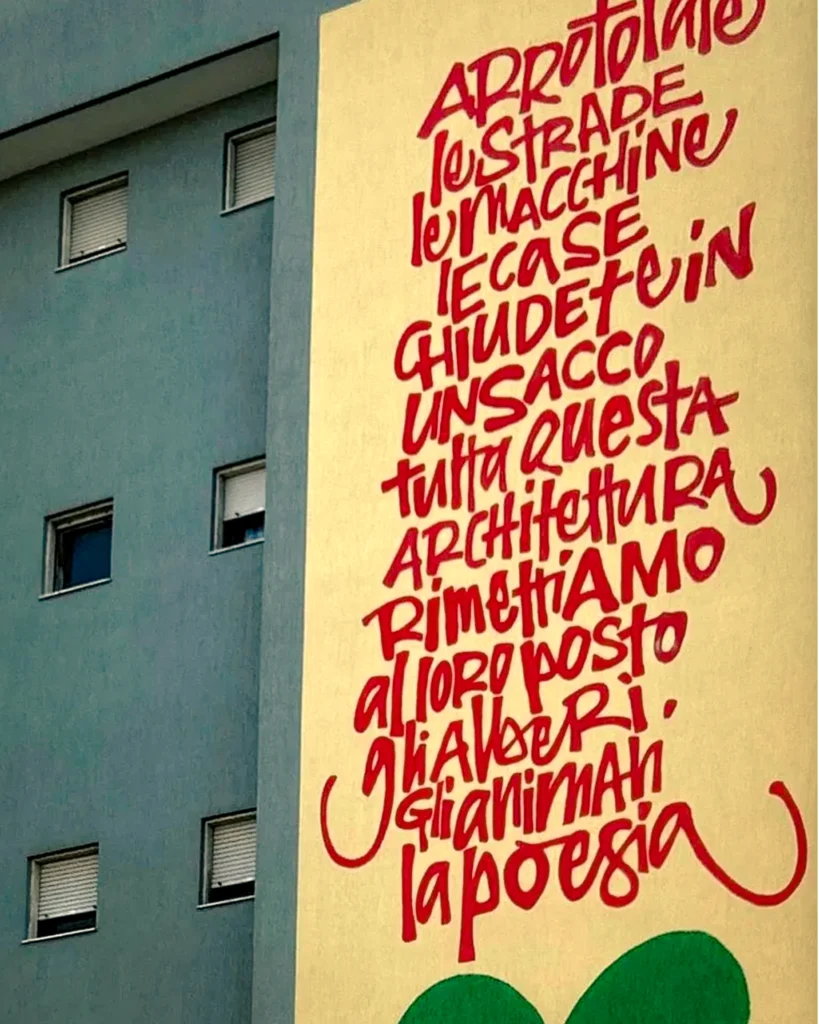 ARROTOLATE
le STRADE
le MACCHINE
le CASE
CHIUDETE IN
UN SACCO
tutta QUESTA
ARCHITETTURA
RIMETTIAMO
al loro posto
gli AlbeRi,
Gli animali
la poesia